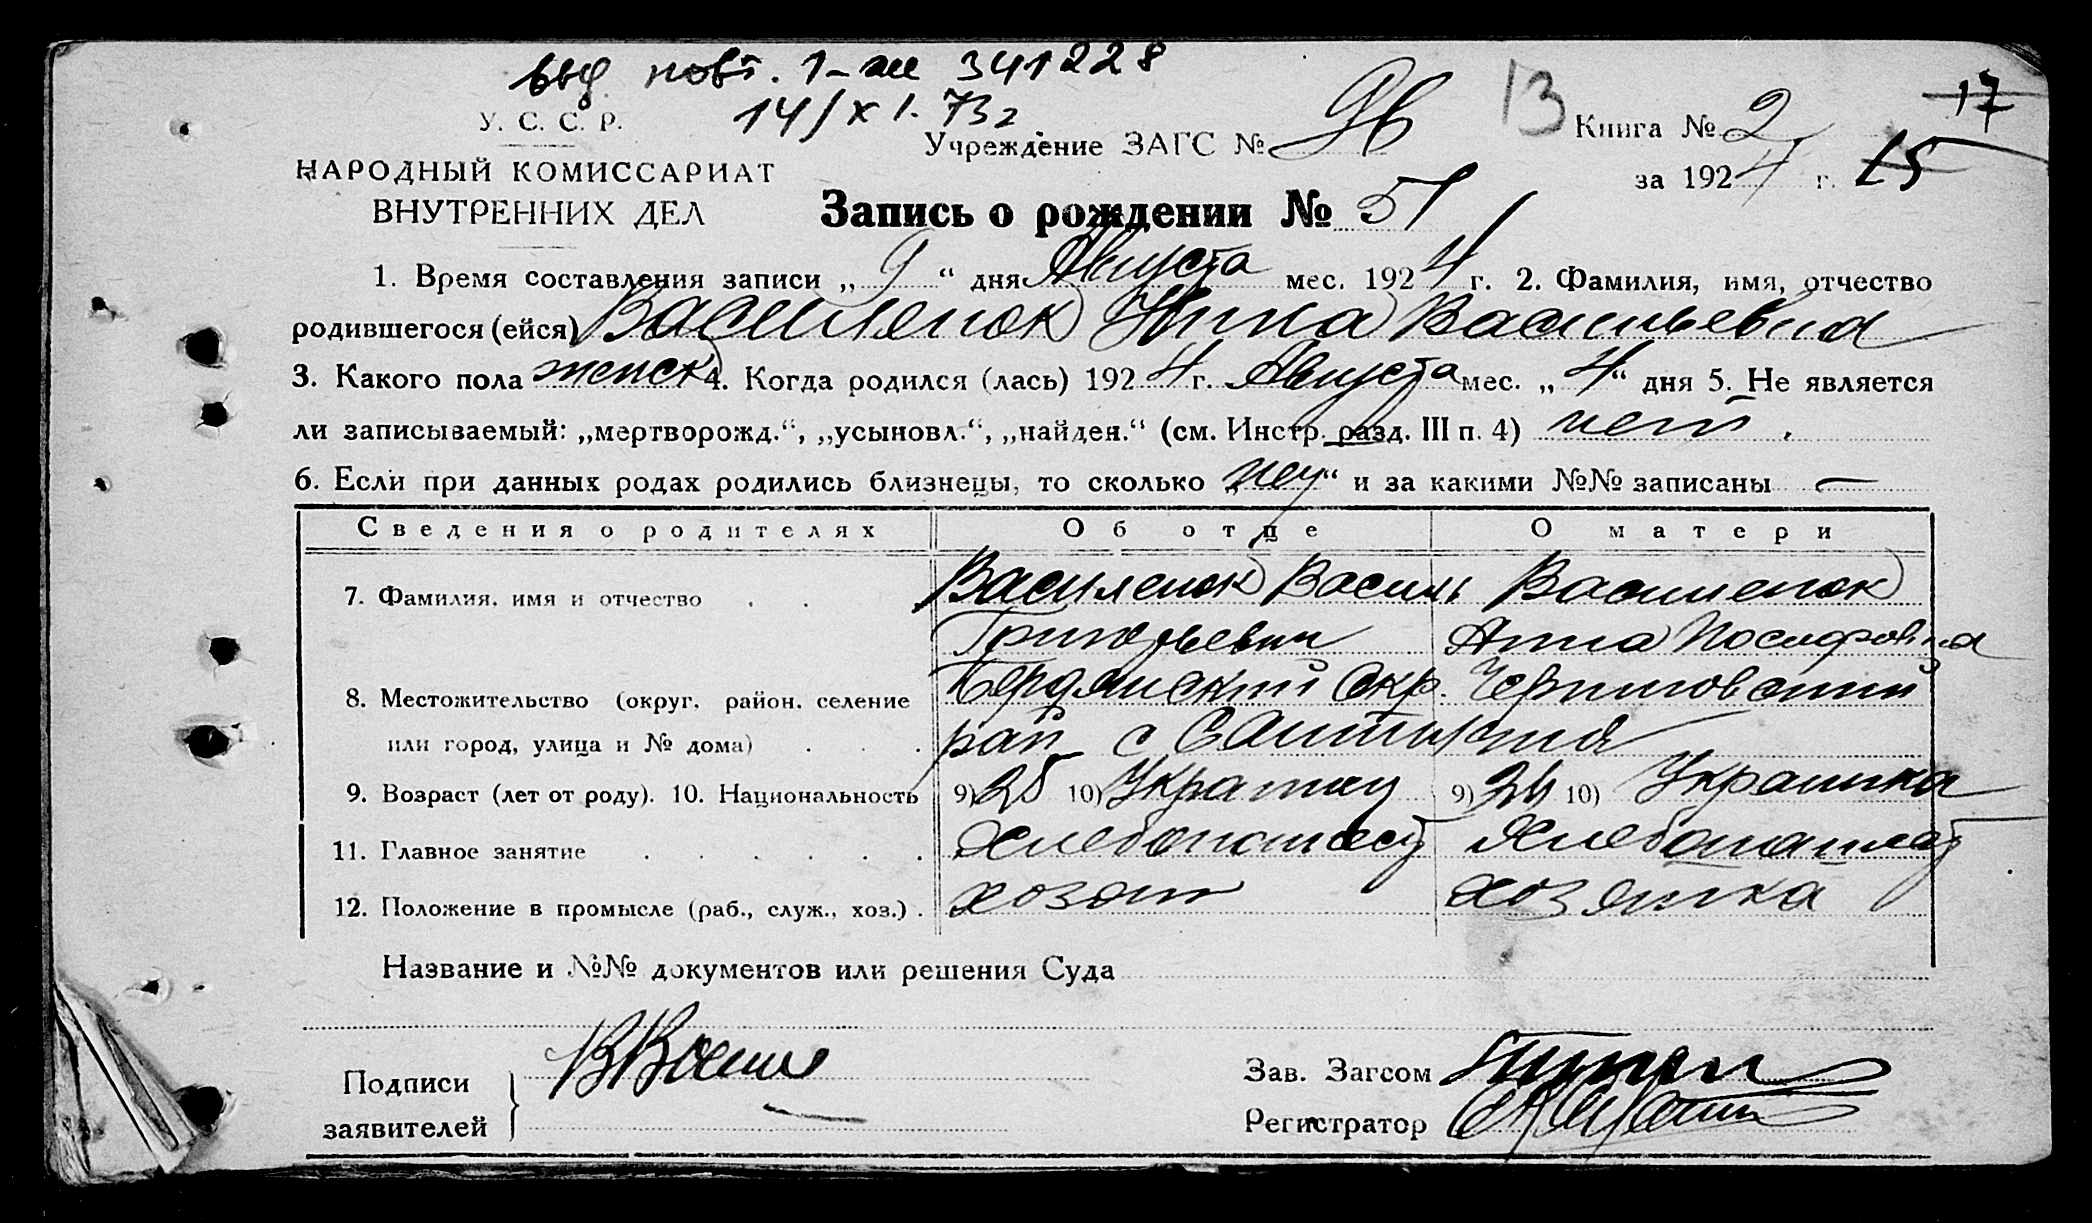 выд. повт. 1-жс 341228
14/XI. 73г
13
17
У. С. С. Р.
Учреждение ЗАГС №
Книга № 2
НАРОДНЫЙ КОМИССАРИАТ
за 1924 г. 15
ВНУТРЕННИХ ДЕЛ
Запись о рождении № 51
1. Время составления записи „9“ дня Августа мес. 1924 г. 2. Фамилия, имя, отчество
родившегося (ейся) Василенок Нина Васильевна
3. Какого пола женск 4. Когда родился (лась) 1924 г. Августа мес. „4“ дня 5. Не является
ли записываемый: „мертворожд.“, „усыновл.“, „найден.“ (см. Инстр. разд. III п. 4) нет.
6. Если при данных родах родились близнецы, то сколько „ “ и за какими №№ записаны —
Сведения о родителях Об отце О матери
7. Фамилия, имя и отчество . . Василенок Василь Василенок
Григорьевич Анна Иосифовна
8. Местожительство (округ, район, селение Бердянский Окр. Черниговский
или город, улица и № дома) . . . рай с
9. Возраст (лет от роду). 10. Национальность 9) 25 10) Украинец 9) 24 10) Украинка
11. Главное занятие . . . . . . Хлебопашест Хлебопашест
12. Положение в промысле (раб., служ., хоз.) . хозяин хозяйка
Название и №№ документов или решения Суда
Подписи
заявителей
Зав. Загсом
Регистратор